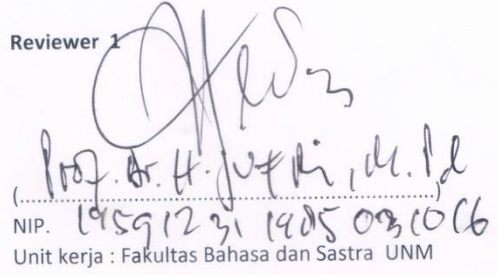 Reviewer 1
Prof. Dr. H. Jufri, M. Pd
(........................................................)
NIP. 19591231 198503 1 016
Unit kerja : Fakultas Bahasa dan Sastra UNM